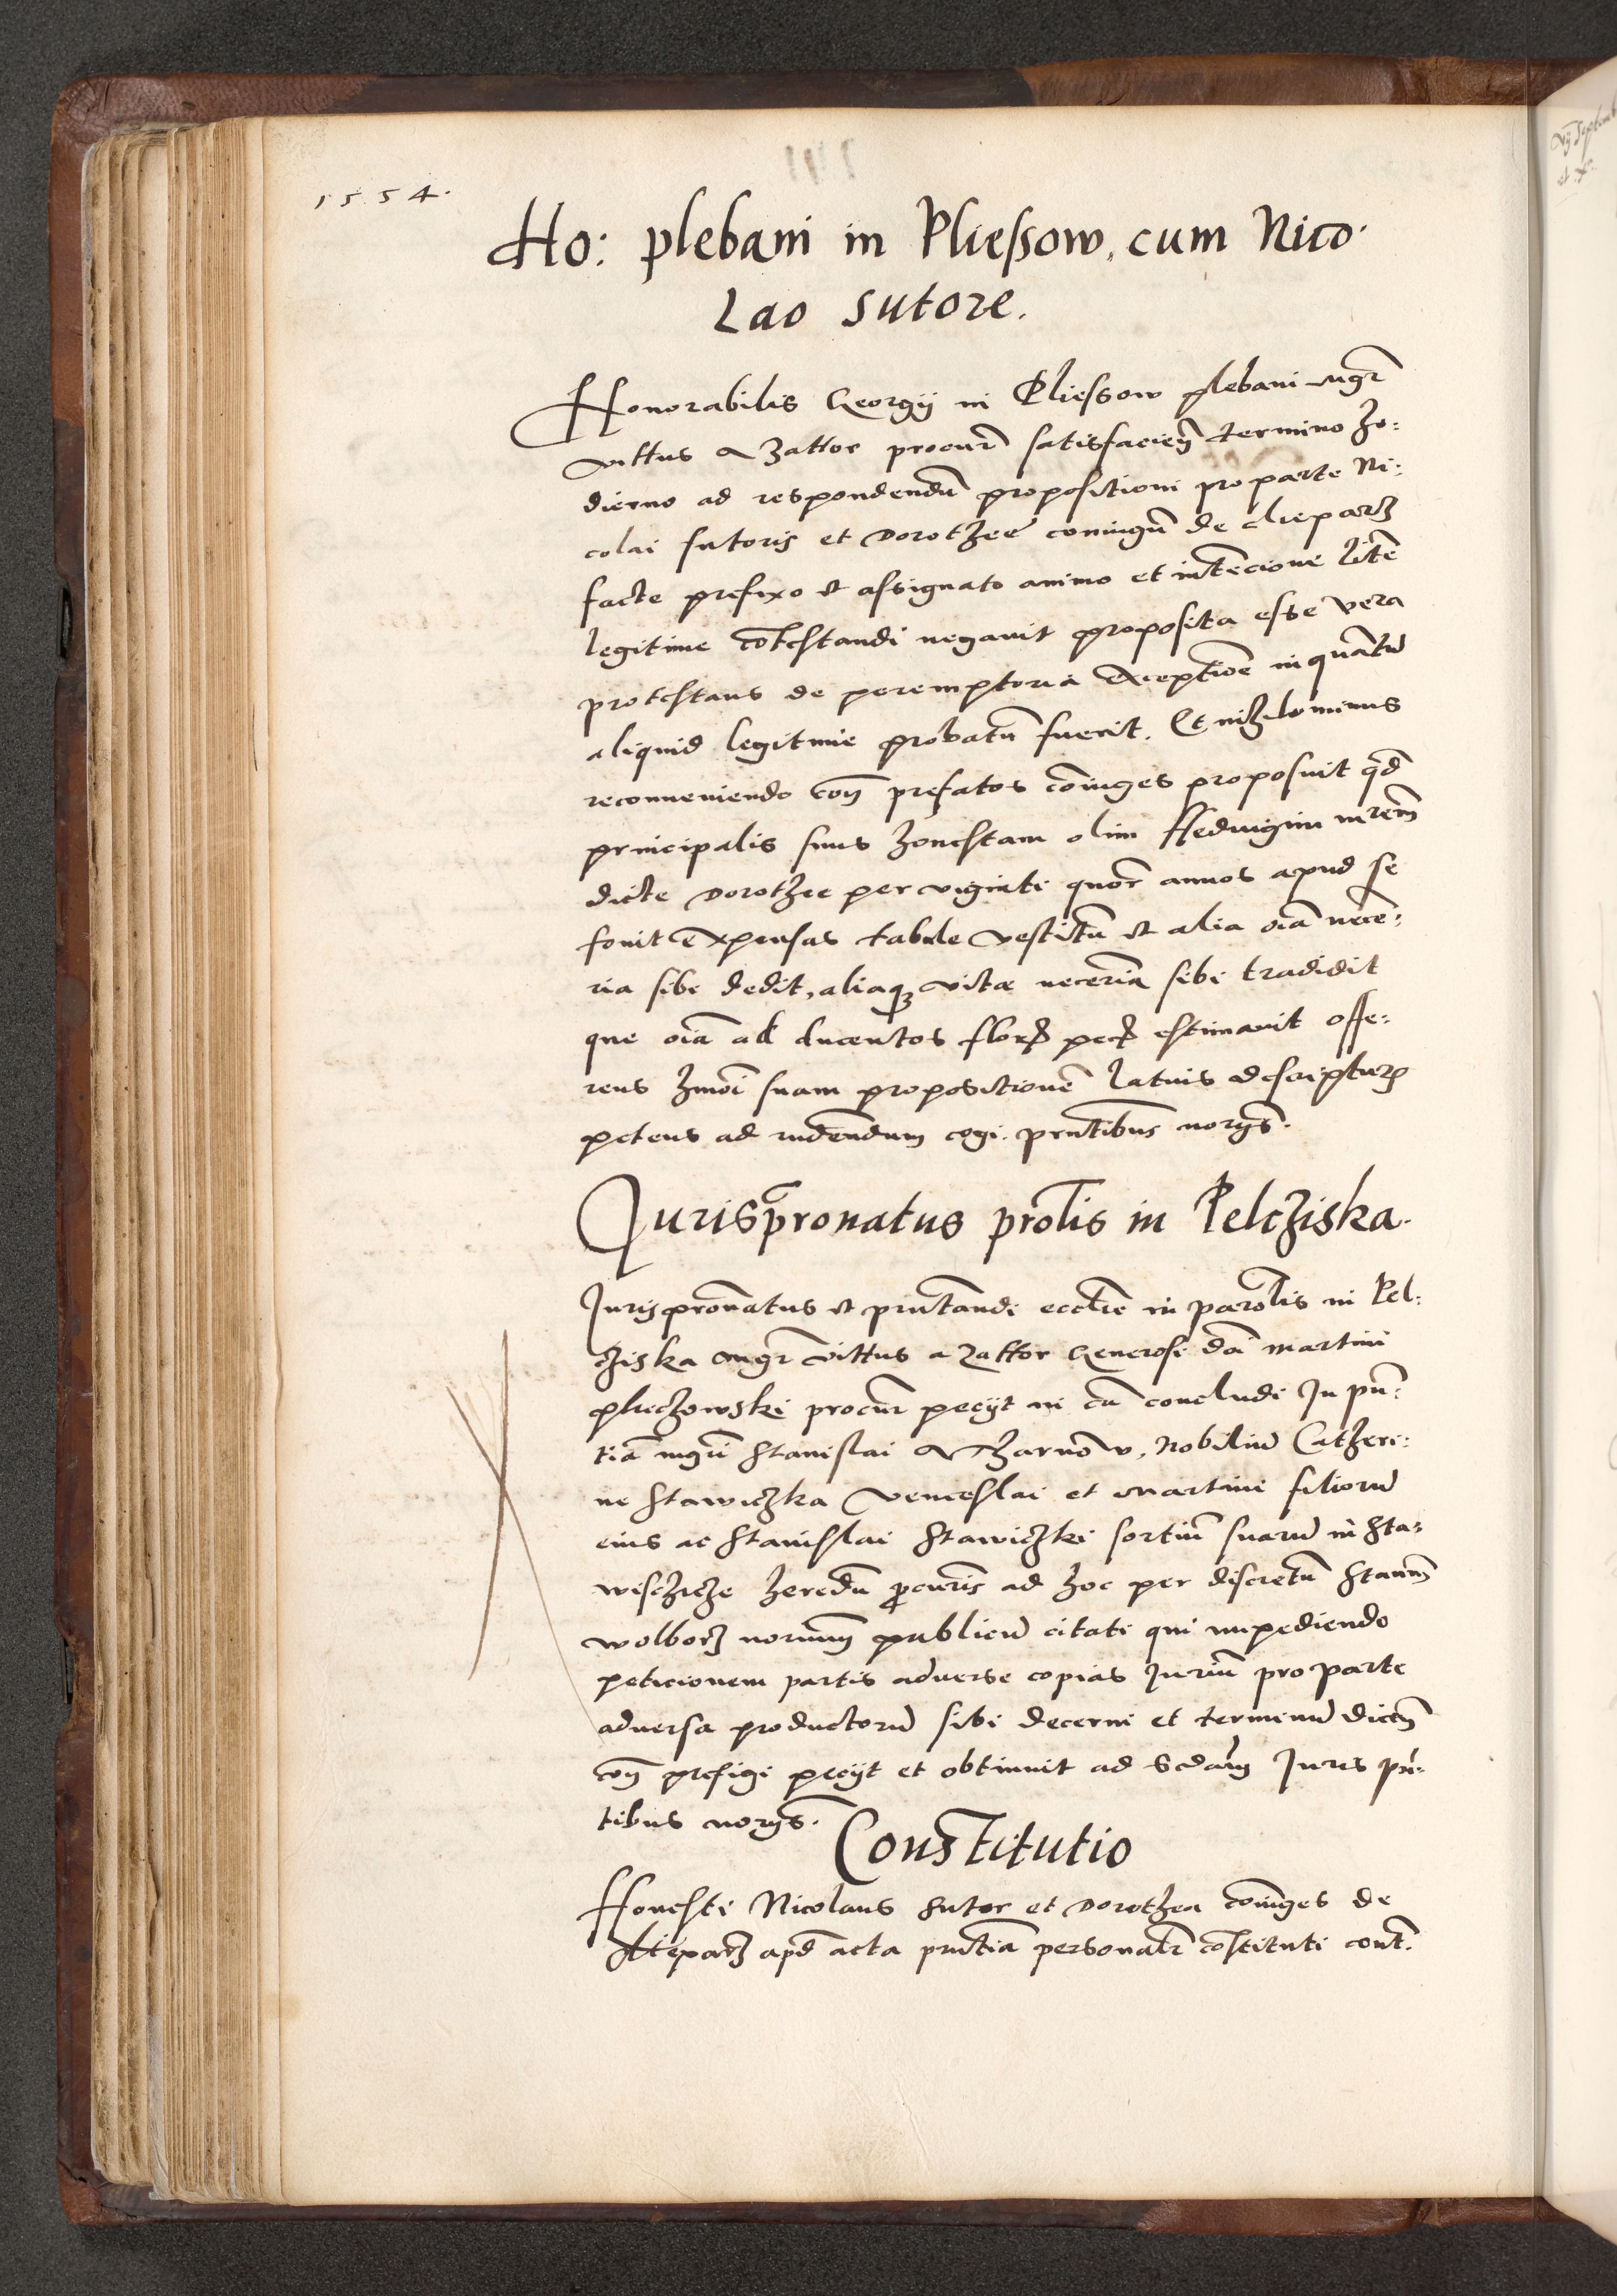 1554.
Ho: plebani in Pliessow, cum Nico-
lao sutore.
Honorabilis Georgij in Pliessow plebani mgr̄
vittus a Zathor procur̄ satisfacien̄ termino ho:
dierno ad respondendū propositioni pro parte Ni:
colai sutoris et Dorothee coniugū de Cleparz
facte prefixo et assignato animo et intēcione litē
legitime cōtestandi negauit proposita esse vera
protestans de peremptoria exceptiōe in quātū
aliquid legitime probatū fuerit. Et nihilominus
reconueniendo con̄ prefatos cōiuges proposuit qd̄
principalis suus honestam olim Heduigim mrem̄
dicte Dorothee per viginti quor̄ annos apud se
fouit expensas tabule vestitū et alia oīa nece:
ria sibi dedit, aliaqȝ vitæ neceria sibi tradidit
que oīa ad ducentos flor pec estimauit offe:
rens hmōi suam propositionē latius descriptur
petens ad rndendum cogi. pntibus norijs.
Jurispronatus prolis in Pelcziska.
Jurispronatus et pntandi ecclie in parolis in Pel:
cziska mgr̄ vittus a Zathor Generosi dni Martini
plieczowski procur̄ pecijt in cā concludi In pn̄:
tiā mgri Stanislai a Tharnow, Nobiliū Catheri:
ne Stawiczka Venceslai et Martini filiorū
eius ac Stanislai Stawiczki sortiū suarū in Sta:
wischicze heredū procuris ad hoc per discretū Stanum
wolborz norium publicū citati qui impediendo
peticionem partis aduerse copias Juriū pro parte
aduersa productorū sibi decerni et terminū dicen̄
con̄ prefigi pecijt et obtinuit ad Scdam Juris pn̄-
tibus norijs.
Constitutio
Honesti Nicolaus Sutor et Dorothea cōiuges de
Cleparz apd̄ acta pntia personalr̄ cōstituti cont̄.